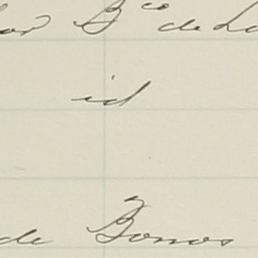 Bco de Lo
id
de Bonos